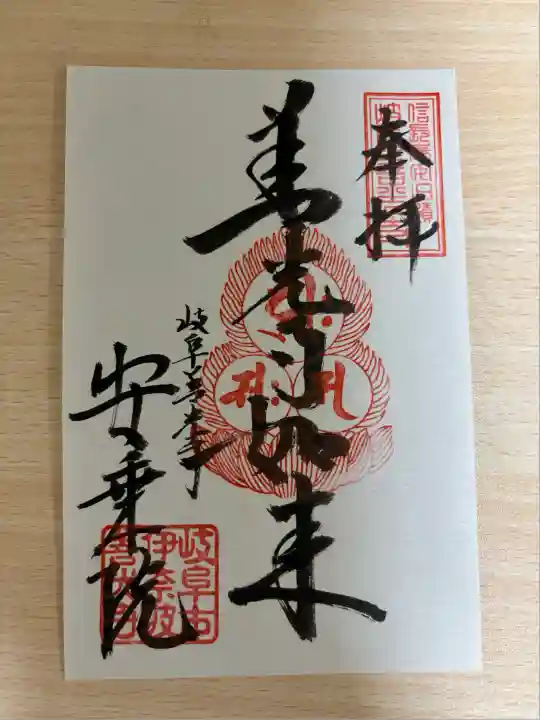 奉拝
善光寺如来
岐阜善光寺
安乗院
岐阜市
伊奈波
善光寺